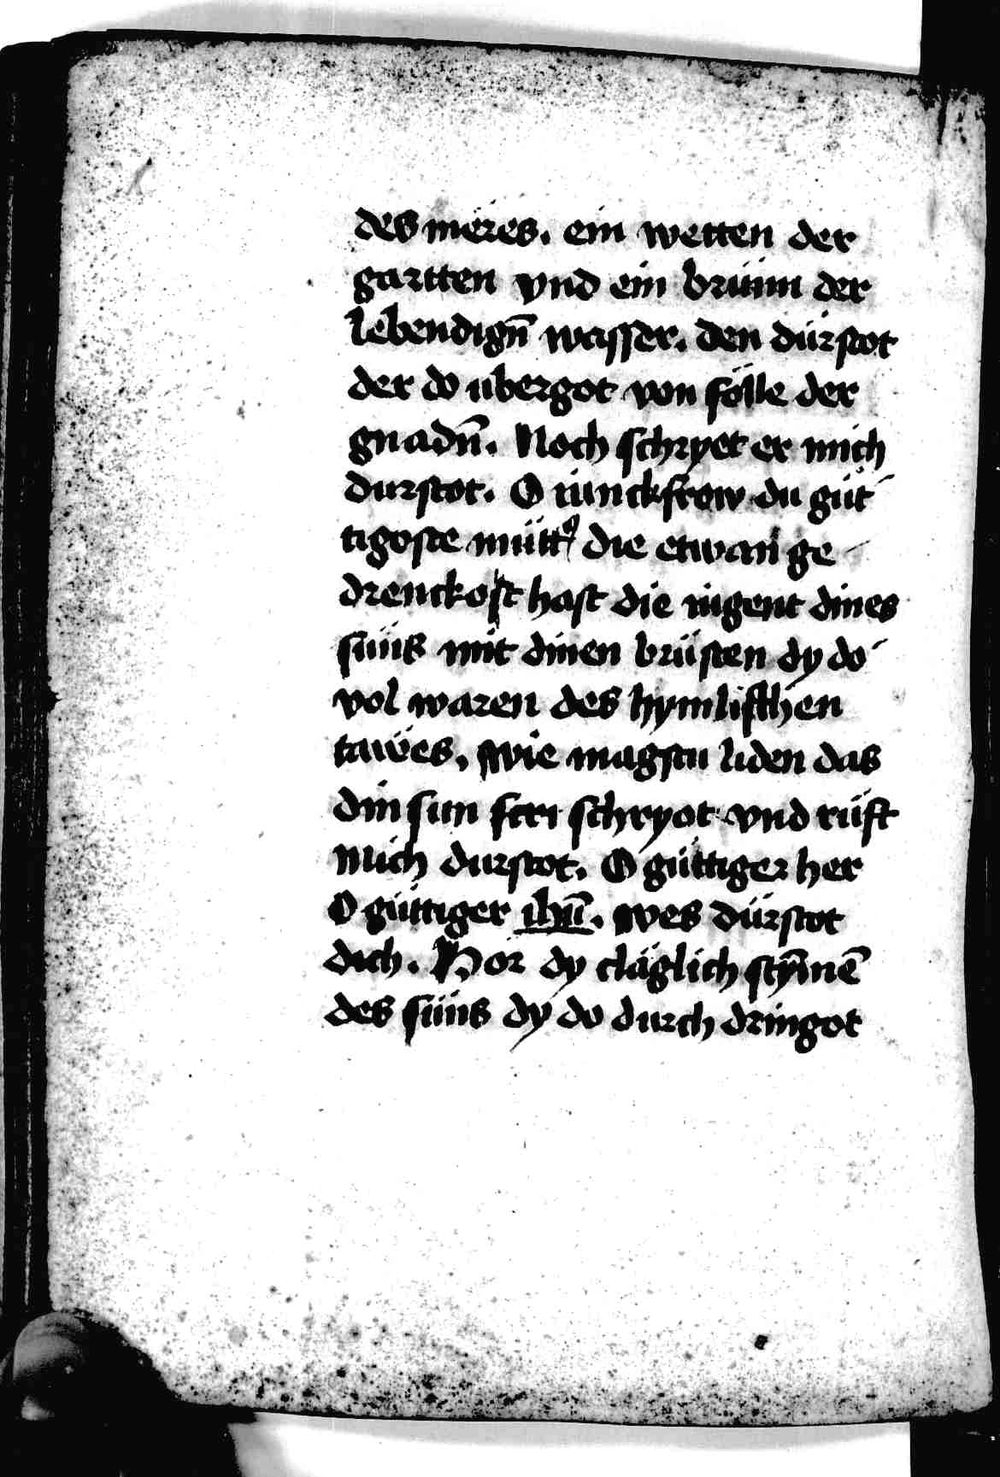 des meres. ein wetten der
gartten vnd ein brünn der
lebendign̄ wasser. den dürstot
der do übergot von fölle der
gnadn̄. Noch schryet er mich
durstot. O iunckfrow du güt
tigoste mütt͛ die etwan ge
drenckost hast die iugent dines
süns mit dinen brüsten dy do
vol waren des hymlischen
tawes, wie magstu liden das
din sun schryot vnd rüft
mich durstot. O güttiger her
O güttiger ihū. wes dürstot
dich. Hör dy cläglich stȳmē
des süns dy do durch dringot